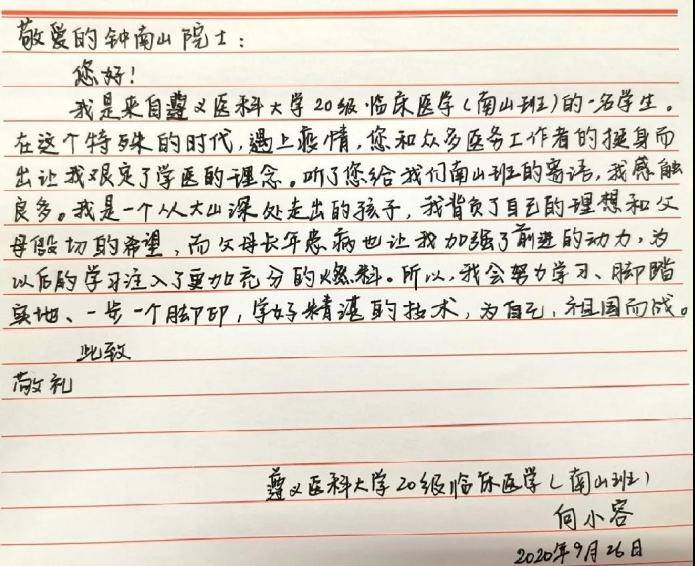 敬爱的钟南山院士：
您好！
我是来自遵义医科大学20级临床医学(南山班)的一名学生。
在这个特殊的时代，遇上疫情，您和众多医务工作者的挺身而
出让我艰定了学医的理念。听了您给我们南山班的寄语，我感触
良多。我是一个从大山深处走出的孩子，我背负了自己的理想和父
母殷切的希望，而父母长年患病也让我加强了前进的动力，为
以后的学习注入了更加充分的燃料。所以，我会努力学习、脚踏
实地、一步一个脚印，学好精湛的技术，为自己，祖国而战。
此致
敬礼
遵义医科大学20级临床医学(南山班)
何小容
2020年9月26日